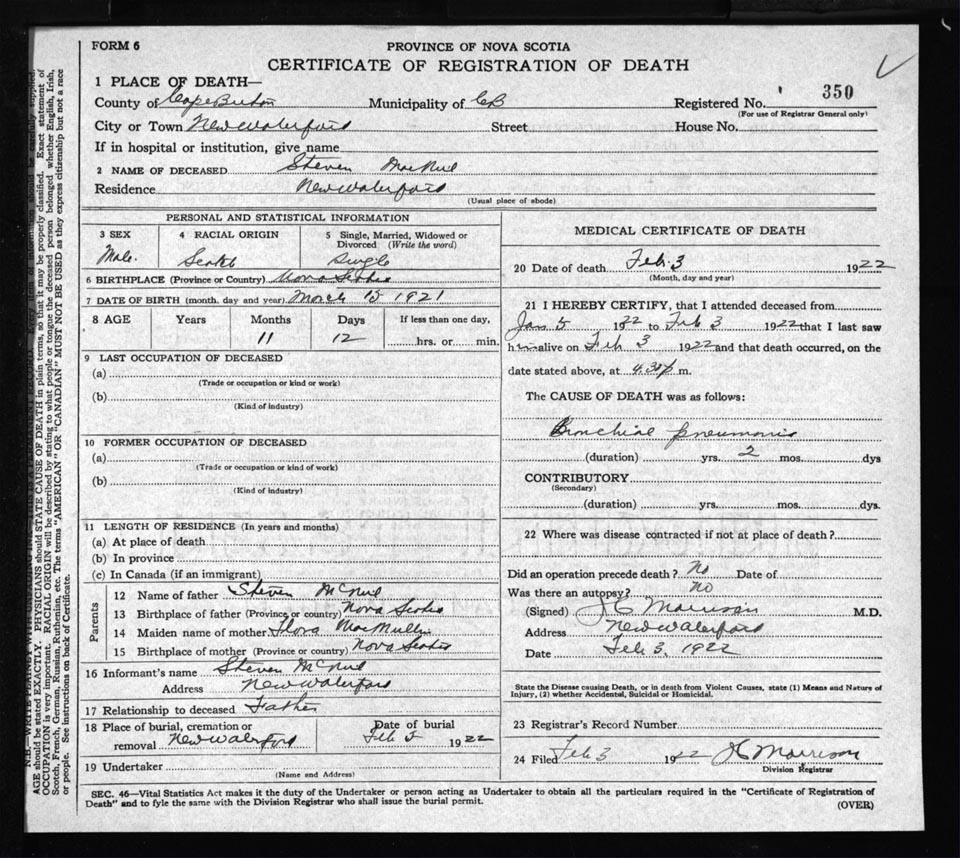 FORM 6
PROVINCE OF NOVA SCOTIA
CERTIFICATE OF REGISTRATION OF DEATH
1 PLACE OF DEATH—
County of Cape Breton Municipality of CB Registered No. 350
(For use of Registrar General only)
City or Town New Waterford Street House No.
If in hospital or institution, give name
2 NAME OF DECEASED Steven MacNeil
Residence New Waterford
(Usual place of abode)
PERSONAL AND STATISTICAL INFORMATION
3 SEX 4 RACIAL ORIGIN 5 Single, Married, Widowed or
Divorced (Write the word)
Male. Scotch Single
6 BIRTHPLACE (Province or Country) Nova Scotia
7 DATE OF BIRTH (month, day and year) March 15 1921
8 AGE Years Months Days If less than one day,
11 12 hrs. or min.
9 LAST OCCUPATION OF DECEASED
(a)
(Trade or occupation or kind or work)
(b)
(Kind of industry)
10 FORMER OCCUPATION OF DECEASED
(a)
(Trade or occupation or kind of work)
(b)
(Kind of industry)
11 LENGTH OF RESIDENCE (In years and months)
(a) At place of death
(b) In province
(c) In Canada (if an immigrant)
Parents
12 Name of father Steven McNeil
13 Birthplace of father (Province or country) Nova Scotia
14 Maiden name of mother Flora MacMullin
15 Birthplace of mother (Province or country) Nova Scotia
16 Informant's name Steven McNeil
Address New Waterford
17 Relationship to deceased Father
18 Place of burial, cremation or Date of burial
removal New Waterford Feb 5 1922
19 Undertaker
(Name and Address)
MEDICAL CERTIFICATE OF DEATH
20 Date of death Feb. 3 1922
(Month, day and year)
21 I HEREBY CERTIFY, that I attended deceased from
Jan 5 1922 to Feb 3 1922 that I last saw
him alive on Feb 3 1922 and that death occurred, on the
date stated above, at 4.30 p m.
The CAUSE OF DEATH was as follows:
Bronchial pneumonia
(duration) yrs. 2 mos. dys
CONTRIBUTORY
(Secondary)
(duration) yrs. mos. dys.
22 Where was disease contracted if not at place of death?
Did an operation precede death? No Date of
Was there an autopsy? No
(Signed) J C Morrison M.D.
Address New Waterford
Date Feb 3, 1922
State the Disease causing Death, or in death from Violent Causes, state (1) Means and Nature of
Injury, (2) whether Accidental, Suicidal or Homicidal.
23 Registrar's Record Number
24 Filed Feb 3 1922 J C Morrison
Division Registrar
SEC. 46—Vital Statistics Act makes it the duty of the Undertaker or person acting as Undertaker to obtain all the particulars required in the "Certificate of Registration of
Death" and to fyle the same with the Division Registrar who shall issue the burial permit. (OVER)
AGE should be stated EXACTLY. PHYSICIANS should STATE CAUSE OF DEATH in plain terms, so that it may be properly classified. Exact statement of
OCCUPATION is very important. RACIAL ORIGIN will be described by stating to what people or tongue the deceased person belonged whether English, Irish,
Scotch, French, German, Russian, Ruthenian, etc. The terms "AMERICAN" OR "CANADIAN" MUST NOT BE USED as they express citizenship but not a race
or people. See instructions on back of Certificate.